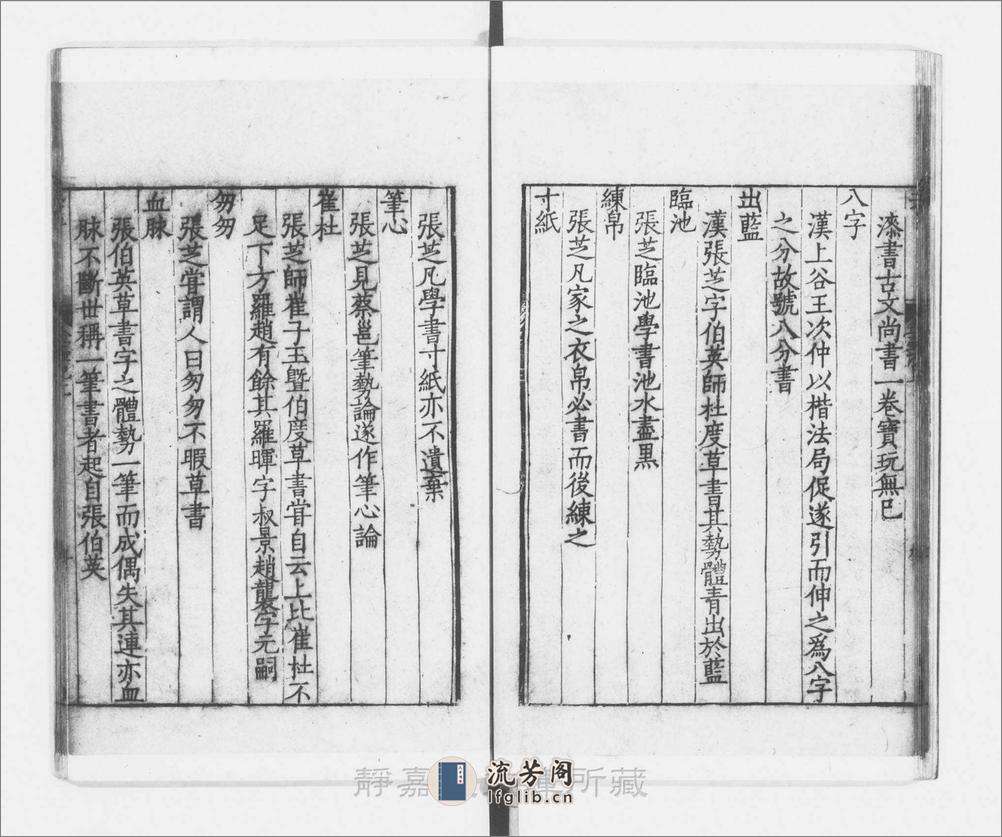 漆書古文尚書一卷寶玩無已
八字
漢上谷王次仲以楷法局促遂引而伸之爲八字
之分故號八分書
出藍
漢張芝字伯英師杜度草書其勢體青出於藍
臨池
張芝臨池學書池水盡黑
練帛
張芝凡家之衣帛必書而後練之
寸紙
張芝凡學書寸紙亦不遺棄
筆心
張芝見蔡邕筆勢論遂作筆心論
崔杜
張芝師崔子玉曁伯度草書甞自云上比崔杜不
足下方羅趙有餘其羅暉字叔景趙襲字元嗣
匆匆
張芝甞謂人曰匆匆不暇草書
血脉
張伯英草書字之體勢一筆而成偶失其連亦血
脉不斷世稱一筆書者起自張伯英
靜嘉
所藏
流芳阁
lfglib.cn